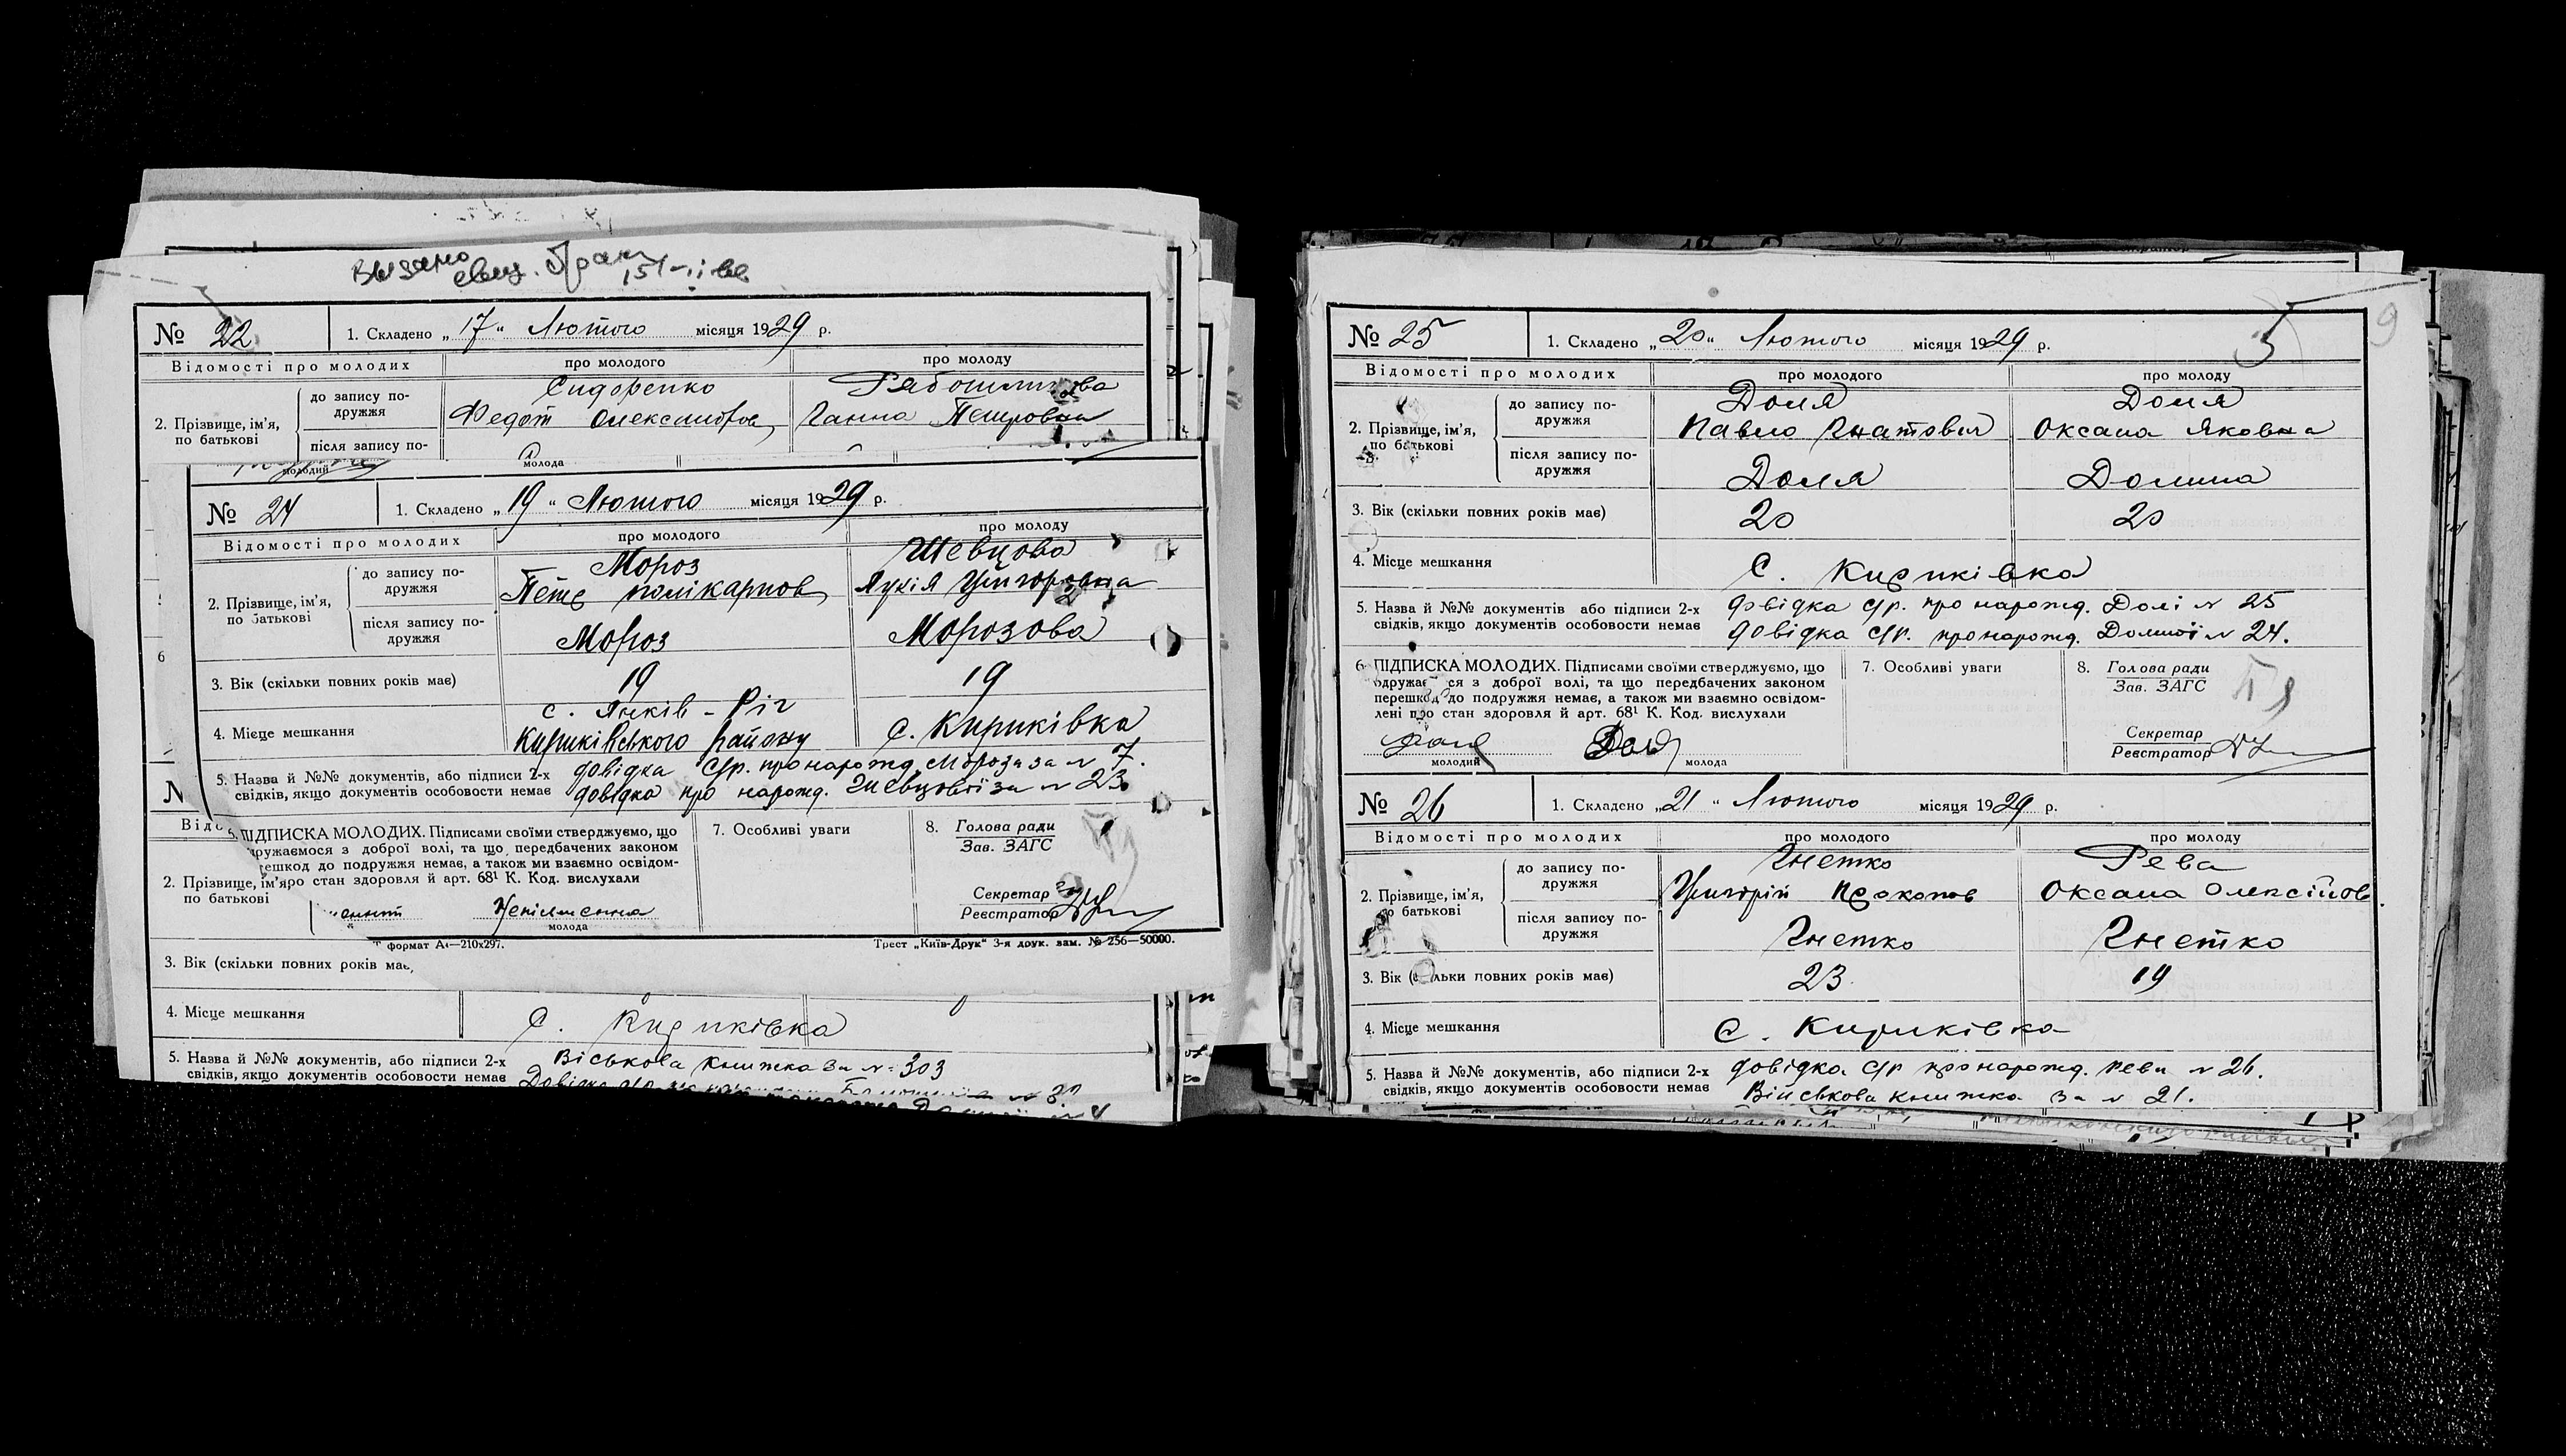 Выдано
свид.
№ 22 1. Складено „17“ Лютого місяця 1929 р.
Відомості про молодих про молодого про молоду
2. Прізвище, ім'я, по батькові
до запису подружжя
Сидоренко
Федот Олександров Ганна Петровна
після запису по-
молодий молода
№ 24 1. Складено „19“ Лютого місяця 1929 р.
Відомості про молодих про молодого про молоду
2. Прізвище, ім'я, по батькові
до запису по-дружжя
Мороз Шевцова
Петр полікарпов Лукія Григоровна
після запису по-дружжя Мороз Морозова
3. Вік (скільки повних років має) 19 19
4. Місце мешкання с. Янків-Ріг Кириківського району с. Кириківка
5. Назва й №№ документів, або підписи 2-х довідка С/р. про нарожд. Мороза за № 7.
свідків, якщо документів особовости немає довідка про нарожд. Шевцової за № 23
ПІДПИСКА МОЛОДИХ. Підписами своїми стверджуємо, що
дружаємося з доброї волі, та що передбачених законом
решкод до подружжя немає, а також ми взаємно освідом-
про стан здоровля й арт. 68¹ К. Код. вислухали
7. Особливі уваги
8. Голова ради
Зав. ЗАГС
Секретар
Реєстратор
Неписменна
молода
формат А4—210х297.
Трест „Київ-Друк“ 3-я друк. зам. № 256—50000.
№
Відо
2. Прізвище, ім'я
по батькові
3. Вік (скільки повних років має,
4. Місце мешкання с. Кириківка
5. Назва й №№ документів, або підписи 2-х Віськова книжка за № 303
свідків, якщо документів особовости немає
№ 25 1. Складено „20“ Лютого місяця 1929 р.
5
9
Відомості про молодих про молодого про молоду
2. Прізвище, ім'я,
по батькові
до запису по-дружжя
Доля Доля
Павло Гнатович Оксана Яковна
після запису по-дружжя Доля Долина
3. Вік (скільки повних років має) 20 20
4. Місце мешкання с. Кириківка
5. Назва й №№ документів або підписи 2-х довідка С/р. про нарожд. Долі № 25
свідків, якщо документів особовости немає довідка С/р. про нарожд. Долиної № 24.
6. ПІДПИСКА МОЛОДИХ. Підписами своїми стверджуємо, що
одружаємся з доброї волі, та що передбачених законом
перешкод до подружжя немає, а також ми взаємно освідом-
лені про стан здоровля й арт. 68¹ К. Код. вислухали
7. Особливі уваги
8. Голова ради
Зав. ЗАГС
Секретар
Реєстратор
Доля Доля
молодий молода
№ 26 1. Складено „21“ Лютого місяця 1929 р.
Відомості про молодих про молодого про молоду
2. Прізвище, ім'я,
по батькові
до запису по-дружжя
Гнетко Рева
Григорій Прокопов Оксана Олексійов.
після запису по-дружжя Гнетко Гнетко
3. Вік (скільки повних років має) 23 19
4. Місце мешкання с. Кириківка
5. Назва й №№ документів, або підписи 2-х довідка С/р про нарожд. Реви № 26.
свідків, якщо документів особовости немає Військова книжка за № 21.